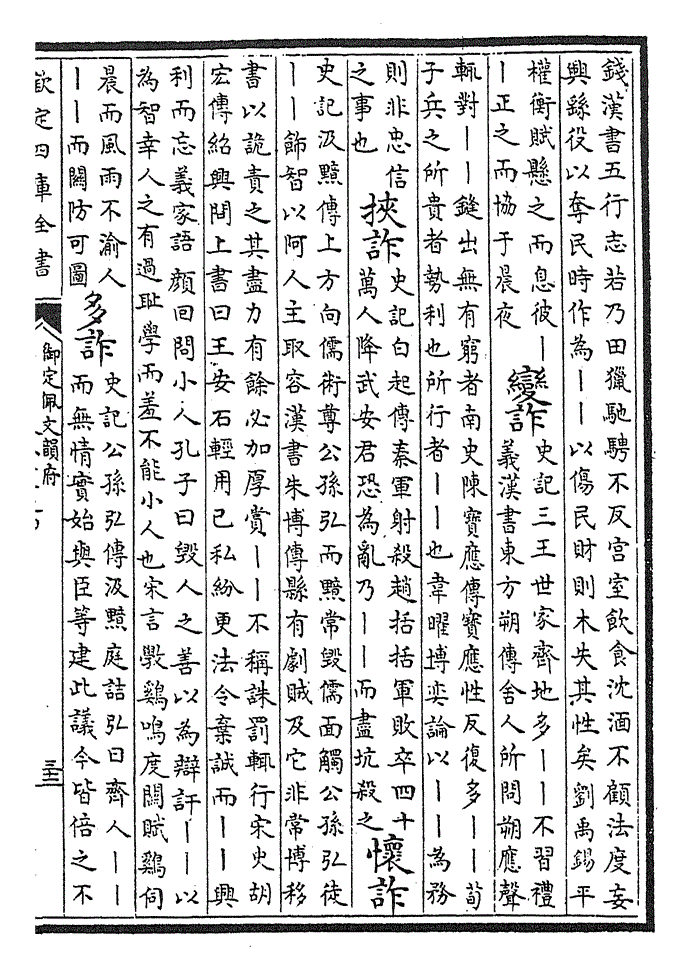 錢漢書五行志若乃田獵馳騁不反宫室飲食沈湎不顧法度妄
興繇役以奪民時作為丨丨以傷民財則木失其性矣劉禹錫平
權衡賦懸之而息彼丨
丨正之而協于晨夜
變詐
史記三王世家齊地多丨丨不習禮
義漢書東方朔傳舍人所問朔應聲
輒對丨丨鏠出無有窮者南史陳寶應傳寶應性反復多丨丨荀
子兵之所貴者勢利也所行者丨丨也韋曜博奕論以丨丨為務
則非忠信
之事也
挾詐
史記白起傳秦軍射殺趙括括軍敗卒四十
萬人降武安君恐為亂乃丨丨而盡坑殺之
懷詐
史記汲黯傳上方向儒術尊公孫弘而黯常毁儒面觸公孫弘徒
丨丨飾智以阿人主取容漢書朱博傳縣有劇賊及它非常博移
書以詭責之其盡力有餘必加厚賞丨丨不稱誅罰輒行宋史胡
宏傳紹興間上書曰王安石輕用已私紛更法令棄誠而丨丨興
利而忘義家語顔回問小人孔子曰毁人之善以為辯訐丨丨以
為智幸人之有過恥學而羞不能小人也宋言斆鷄鳴度關賦鷄伺
晨而風雨不渝人
丨丨而關防可圖
多詐
史記公孫弘傳汲黯庭詰弘曰齊人丨丨
而無情實始與臣等建此議今皆倍之不
欽定四庫全書
御定佩文韻府